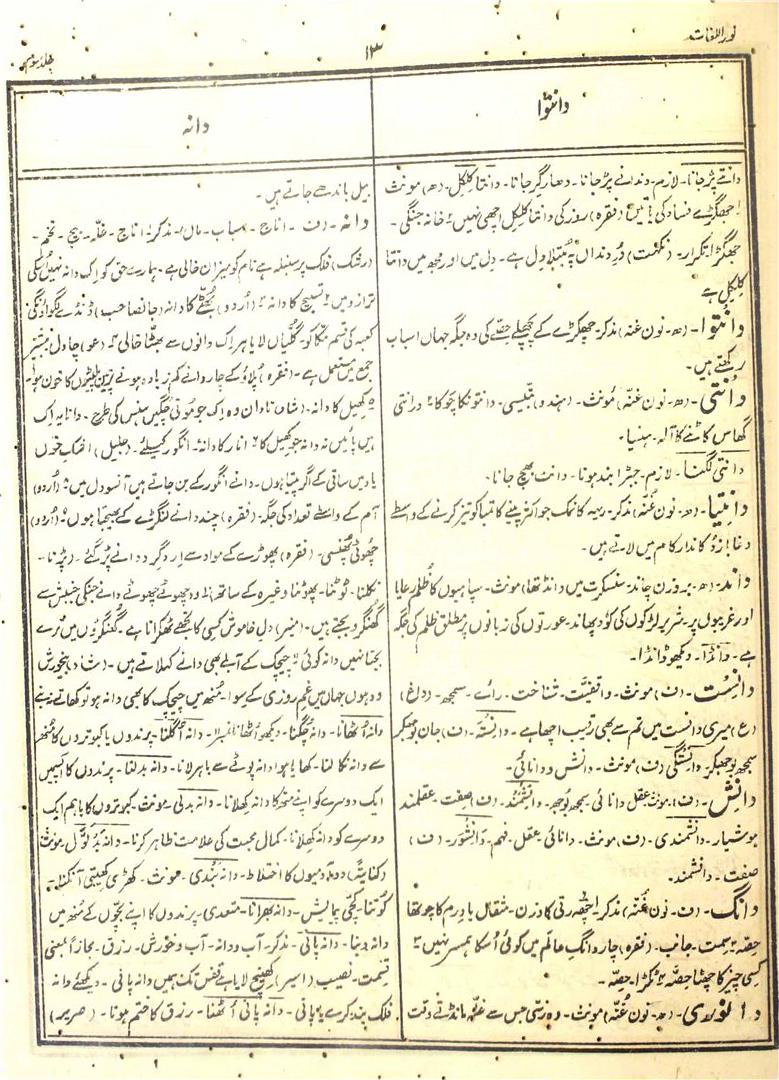 نور اللغات
۱۳
جلد سوم
دانتوا
دانہ
دانتے پڑ جانا۔ لازم۔ دندانے پڑ جانا۔ دھار گر جانا۔ دانتا کلکل۔ (ھ) مونث
جھگڑے فساد کی باتیں (فقرہ) روز کی دانتا کلکل اچھی نہیں خانہ جنگی۔
جھگڑا تکرار۔ (نکہت) دُرِ دنداں پہ مبتلا دل ہے۔ دل میں اور مجھ میں دانتا
کلکل ہے
دانتوا۔ (ھ۔ نون غنہ) مذکر۔ چھکڑے کے پچھلے حصے کی وہ جگہ جہاں اسباب
رکھتے ہیں۔
دانتی۔ (ھ۔ نون غنہ) مونث۔ (ہندو) بتیسی۔ دانتو نکا چوکا ۲ درانتی
گھاس کاٹنے کا آلہ۔ ہنسیا۔
دانتی لگنا۔ لازم۔ جبڑا بند ہونا۔ دانت بھچ جانا۔
دانتیا۔ (ھ۔ نون غنہ) مذکر۔ ریہہ کا نمک جو اکثر پینے کا تمباکو تیز کرنے کے واسطے
دغا باز دُکاندار کام میں لاتے ہیں۔
داند۔ (ھ۔ بروزن چاند۔ سنسکرت میں دانڈ تھا) مونث۔ سپاہیوں کا ظلم رعایا
اور غریبوں پر۔ شریر لڑکوں کی کود پھاند۔ عورتوں کی زبانوں پر مطلق ظلم کی جگہ
ہے۔ دانڈا۔ دیکھو ڈانڈا۔
دانست۔ (ف) مونث۔ واقفیت۔ شناخت۔ رائے۔ سمجھ۔ (داغ)
(ع) میری دانست میں تم سے بھی رقیب اچھا ہے۔ دانستہ۔ (ف) جان بوجھکر
سمجھ بوجھکر دانستگی (ف) مونث۔ دانش و دانائی۔
دانش۔ (ف) مونث عقل دانائی سمجھ بوجھ۔ دانشمند۔ (ف) صفت عقلمند
ہوشیار۔ دانشمندی۔ (ف) مونث۔ دانائی۔ عقل۔ فہم۔ دانشور۔ (ف)
صفت۔ دانشمند۔
دانگ۔ (ف۔ نون غنہ) مذکر ۱ چھہ رتی کا وزن۔ مثقال یا درم کا چوتھا
حصہ ۲ سمت۔ جانب۔ (فقرہ) چار دانگ عالم میں کوئی اُسکا ہمسر نہیں ۳
کسی چیز کا چھٹا حصہ ۴ ٹکڑا۔ حصہ۔
دانوری۔ (ھ۔ نون غنہ) مونث۔ وہ رسی جس سے غلہ مانڈتے وقت
بیل باندھے جاتے ہیں۔
دانہ۔ (ف۔ اناج۔ اسباب۔ مال) مذکر ۱ اناج۔ غلہ۔ بیج۔ تخم۔
(رشک) فلک پر سنبلہ ہے نام کو میزان خالی ہے۔ ہمارے حق کو اک دانہ نہیں
ترازو میں ۲ تسبیح کا دانہ ۳ (اردو) بھٹے کا دانہ (جانصاحب)
کعبہ کی قسم مکا کو گلیاں لایا ہر اک دانوں سے بھٹا خالی ۴ (عو) چاول بیشتر
جمع میں مستعمل ہے۔ (فقرہ) پلاؤ کے چار دانے کم زیادہ ہونے پر
۵ کھیل کا دانہ۔ (شان نادان وہ اک جو موتی چگیں ہنس کی طرح۔ دانا یہ اک
ہیں پائیں نہ دانہ جو کھیل کا ۶ انار کا دانہ ۷ انگور کیلئے۔ (جلیل)
یاد میں ساقی کے اگر پیتا ہوں۔ دانے انگور کے بن جاتے ہیں آنسو دل میں ۸ (اردو)
آم کے واسطے تعداد کی جگہ۔ (فقرہ) چند دانے لنگڑے کے بھیجتا ہوں ۹ (اردو)
چھوٹی پھنسی۔ (فقرہ) پھوڑے کے مواد سے ارد گرد دانے پڑ گئے۔ (پڑنا۔
نکلنا۔ ٹوٹنا۔ پھوٹنا وغیرہ کے ساتھ) ۱۰ وہ چھوٹے چھوٹے دانے جنکی جنبش سے
گھنگرو بجتے ہیں۔ (منیر) دل خاموش کسی کا تجھے ٹھکرانا ہے۔ گھنگروؤں میں ترے
بجتا نہیں دانہ کوئی ۱۱ چیچک کے آبلے بھی دانے کہلاتے ہیں۔ (شاد)
وہ ہوں جہاں میں غم روزی کے سوا۔ منھ میں چیچک کا بھی دانہ ہو تو کھانے نہ بنے
دانہ اُٹھانا۔ دانہ چگنا۔ دیکھو اُٹھانا۔ دانہ اگلنا۔ پرندوں یا کبوتروں کا منھ
سے دانہ نکالنا۔ کھایا ہوا دانہ پوٹے سے باہر لانا۔ دانہ بدلنا۔ پرندوں کا آپسمیں
ایک دوسرے کو اپنے منھ کا دانہ کھلانا۔ دانہ بدلی۔ مونث۔ کبوتروں کا باہم ایک
دوسرے کو دانہ کھلانا۔ کمال محبت کی علامت ظاہر کرنا۔ دانہ بدلول۔ مونث
(کنایۃً) دو آدمیوں کا اختلاط۔ دانہ بندی۔ مونث۔ کھڑی کھیتی آنکنا۔
کوتنا۔ کچی پیمایش۔ دانہ بھرانا۔ متعدی۔ پرندوں کا اپنے بچوں کے منھ میں
دانہ دینا۔ دانہ پانی۔ مذکر۔ آب و دانہ۔ آب و خورش۔ رزق۔ مجازاً بمعنی
قسمت۔ نصیب (اسیر) کھینچ لایا ہے قفس تک ہمیں دانہ پانی۔ دیکھئے دانہ
فلک بند کرے یا پانی۔ دانہ پانی اُٹھنا۔ رزق کا ختم ہونا۔ (صریر)